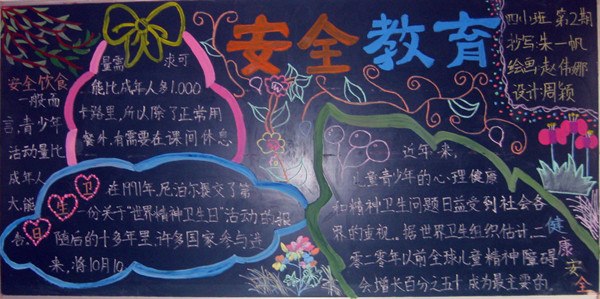 安全教育
四小班 第2期
抄写朱一帆
绘画赵伟娜
设计周颖
安全饮食
一般而
言,青少年
活动量比
成年人
大能
量需 求可
能比成年人多1,000
卡路里,所以除了正常用
餐外,有需要在课间休息
卫
生
日
在1991年,尼泊尔提交了第
一份关于“世界精神卫生日”活动的报
告 随后的十多年里,许多国家参与进
来,将10月10
近年来,
儿童青少年的心理健康
和精神卫生问题日益受到社会各
界的重视。据世界卫生组织估计,二
零二零年以前全球儿童精神障碍
会增长百分之五十成为最主要的,
健康安全